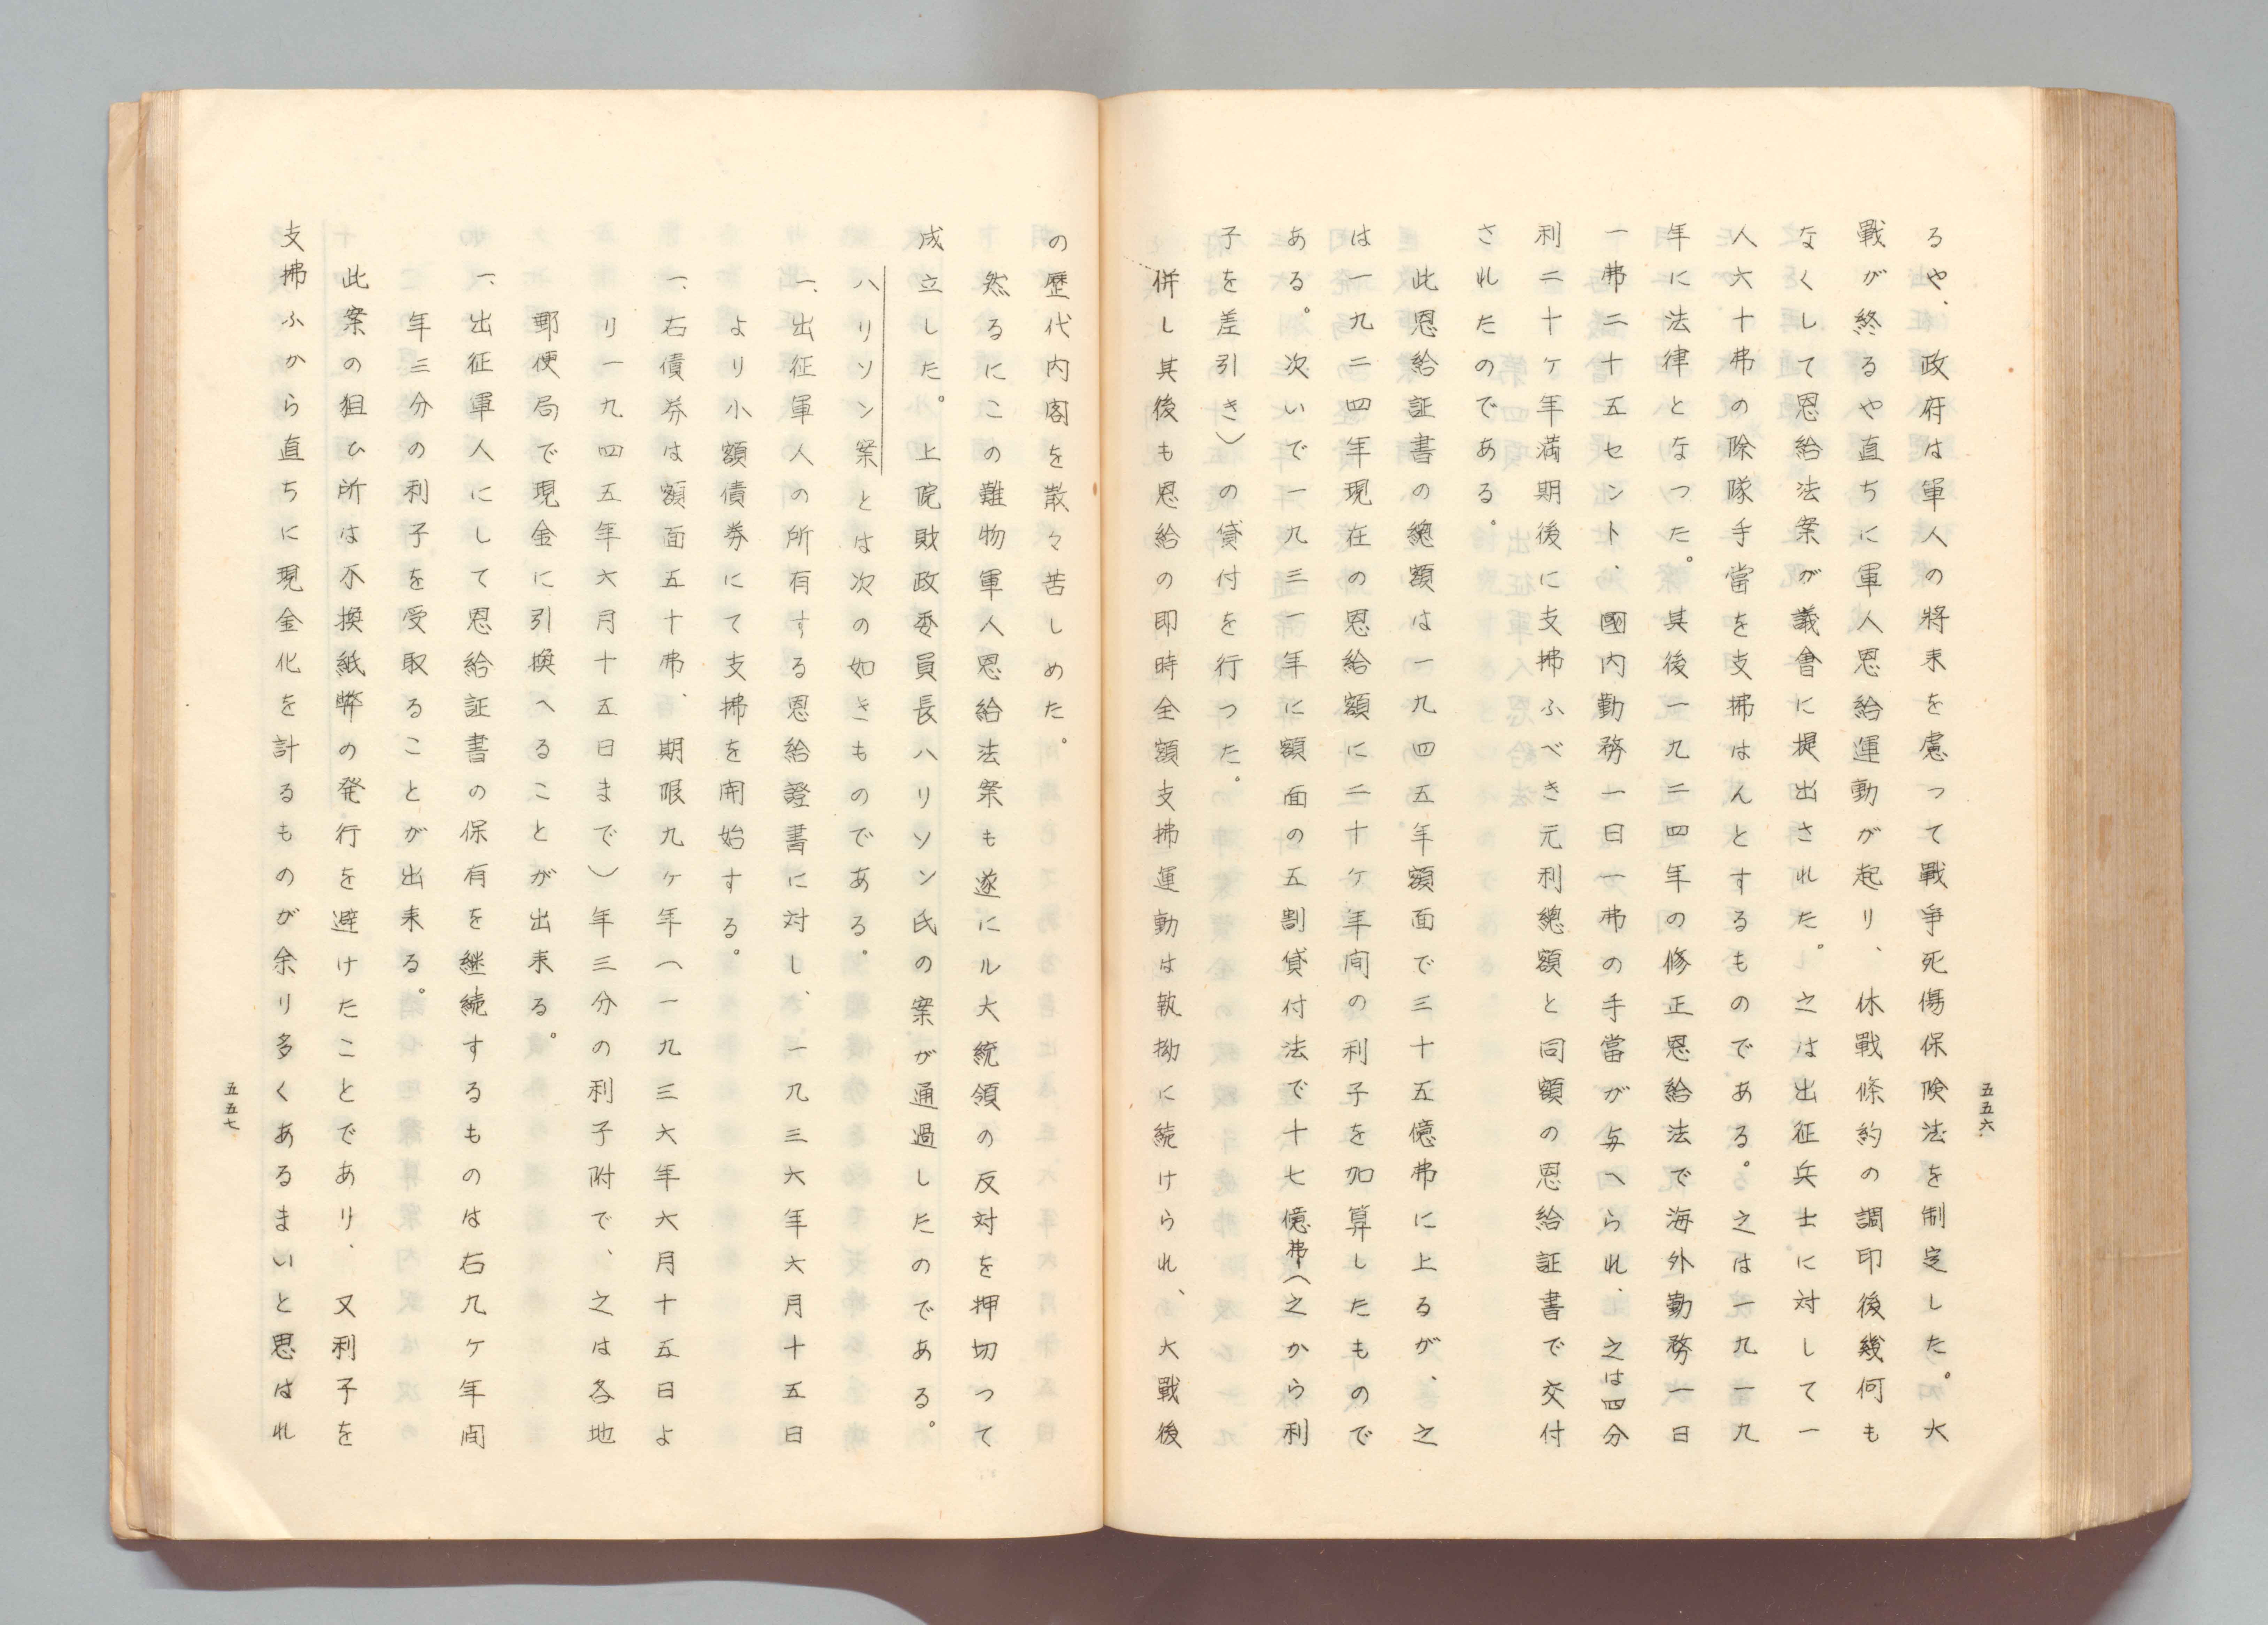 五五六
るや、政府は軍人の將来を慮って戰爭死傷保険法を制定した。大
戰が終るや直ちに軍人恩給運動が起り、休戰條約の調印後幾何も
なくして恩給法案が議會に提出された。之は出征兵士に対して一
人六十弗の除隊手當を支拂はんとするものである。之は一九一九
年に法律となつた。其後一九二四年の修正恩給法で海外勤務一日
一弗二十五セント、國内勤務一日一弗の手當が与へられ、之は四分
利二十ヶ年満期後に支拂ふべき元利總額と同額の恩給証書で交付
されたのである。
此恩給証書の總額は一九四五年額面で三十五億弗に上るが、之
は一九二四年現在の恩給額に二十ヶ年间の利子を加算したもので
ある。次いで一九三一年に額面の五割貸付法で十七億弗（之から利
子を差引き）の貸付を行つた。
併し其後も恩給の即時全額支拂運動は執拗に続けられ、大戰後
の歴代内閣を散々苦しめた。
然るにこの難物軍人恩給法案も遂にル大統領の反対を押切つて
成立した。上院財政委員長ハリソン氏の案が通過したのである。
ハリソン案とは次の如きものである。
一、出征軍人の所有する恩給證書に対し、一九三六年六月十五日
より小額債券にて支拂を開始する。
一、右債券は額面五十弗、期限九ヶ年（一九三六年六月十五日よ
り一九四五年六月十五日まで）年三分の利子附で、之は各地
郵便局で現金に引換へることが出来る。
一、出征軍人にして恩給証書の保有を継続するものは右九ヶ年间
年三分の利子を受取ることが出来る。
此案の狙ひ所は不換紙幣の発行を避けたことであり、又利子を
支拂ふから直ちに現金化を計るものが余り多くあるまいと思はれ
五五七